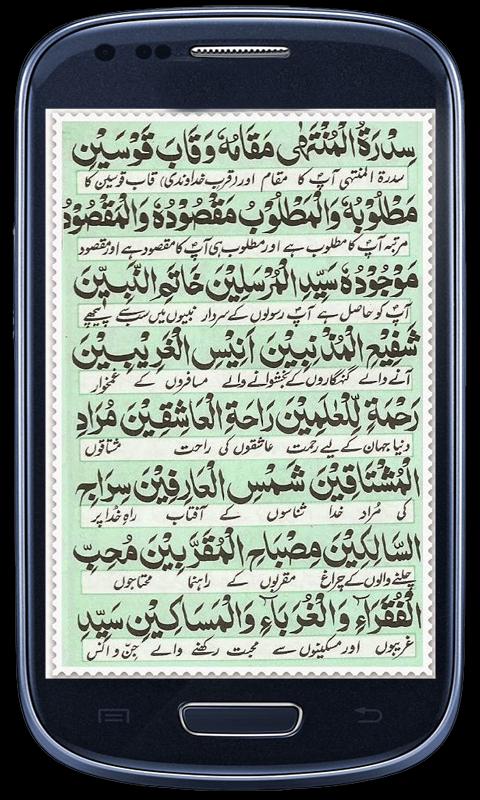 سِدْرَةُ الْمُنْتَهٰى مَقَامُهٗ وَقَابَ قَوْسَيْنِ
سدرة المنتہی آپؐ کا مقام اور (قرب خداوندی) قاب قوسین کا
مَطْلُوْبُهٗ وَالْمَطْلُوْبُ مَقْصُوْدُهٗ وَالْمَقْصُوْدُ
مرتبہ آپؐ کا مطلوب ہے اور مطلوب ہی آپؐ کا مقصود ہے اور مقصود
مَوْجُوْدُهٗ سَيِّدِ الْمُرْسَلِيْنَ خَاتِمِ النَّبِيّٖنَ
آپؐ کو حاصل ہے آپؐ رسولوں کے سردار نبیوں میں سب سے پیچھے
شَفِيْعِ الْمُذْنِبِيْنَ اَنِيْسِ الْغَرِيْبِيْنَ
آنے والے گنہگاروں کے بخشوانے والے مسافروں کے غمخوار
رَحْمَةٍ لِّلْعٰلَمِيْنَ رَاحَةِ الْعَاشِقِيْنَ مُرَادِ
دنیا جہان کے لیے رحمت عاشقوں کی راحت مشتاقوں
الْمُشْتَاقِيْنَ شَمْسِ الْعَارِفِيْنَ سِرَاجِ
کی مُراد خدا شناسوں کے آفتاب راہِ خدا پر
السَّالِكِيْنَ مِصْبَاحِ الْمُقَرَّبِيْنَ مُحِبِّ
چلنے والوں کے چراغ مقربوں کے راہنما محتاجوں
الْفُقَرَآءِ وَالْغُرَبَآءِ وَالْمَسَاكِيْنِ سَيِّدِ
غریبوں اور مسکینوں سے محبت رکھنے والے جِنّ و انس